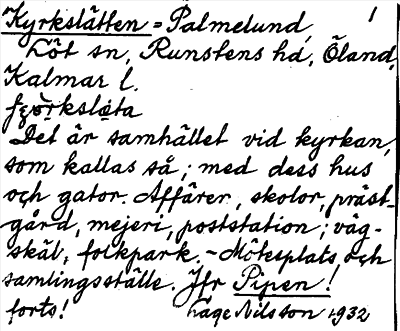 Kyrkslätten = Palmelund, 1
Löt sn, Runstens hd, Öland,
Kalmar l.
Det är samhället vid kyrkan,
som kallas så; med dess hus
och gator. Affärer, skolor, präst-
gård, mejeri, poststation; väg-
skäl, folkpark. - Mötesplats och
samlingsställe. Jfr Pipen!
forts! Åage Nilsson 1932